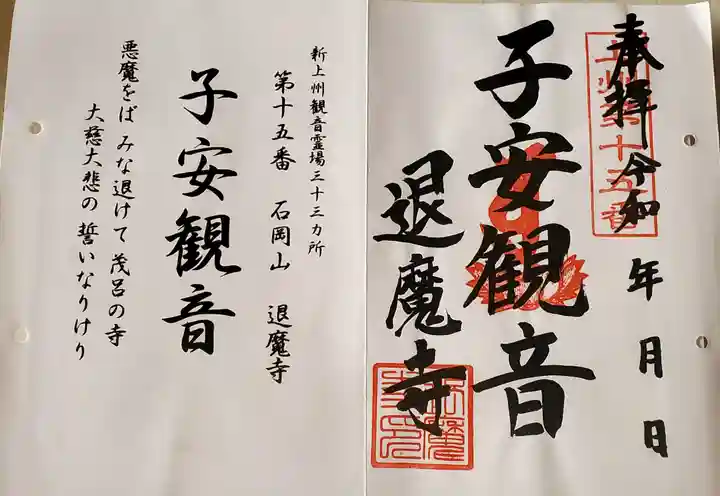 奉拝 令和 年 月 日
上州第十五番
子安観音
退魔寺
新上州観音霊場三十三カ所
第十五番 石岡山 退魔寺
子安観音
悪魔をば みな退けて 茂呂の寺
大慈大悲の 誓いなりけり